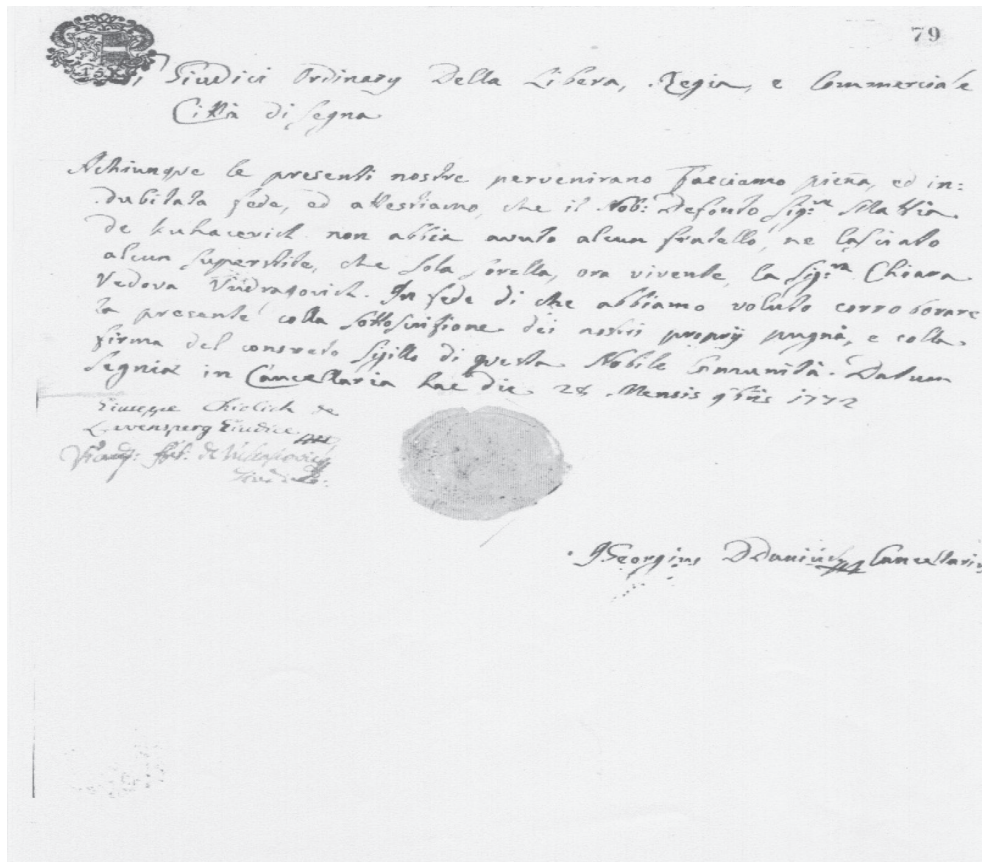 79
Giudici Ordinarÿ Della Libera, Regia, e Commerciale
Città di Segna
Achiunque le presenti nostre pervenirano facciamo piena, ed in:
dubitata fede, ed attestiamo, che il Nob: Defonto Sig:r Mattia
De Kuhacevich non abbia avuto alcun fratello, ne lasciato
alcun superstite, che sola sorella, ora vivente, la Sig:ra Chiara
Vedova Vudragovich. In fede di che abbiamo voluto corroborare
la presente colla sottoscrizione dei nostri proprÿ pugni, e colla
firma del consueto Sigillo di questa Nobile Comunità. Datum
Segniæ in Cancellaria hac die 28 Mensis 9bris 1772
Giuseppe
Giudice
de
Georgius Cancellarius